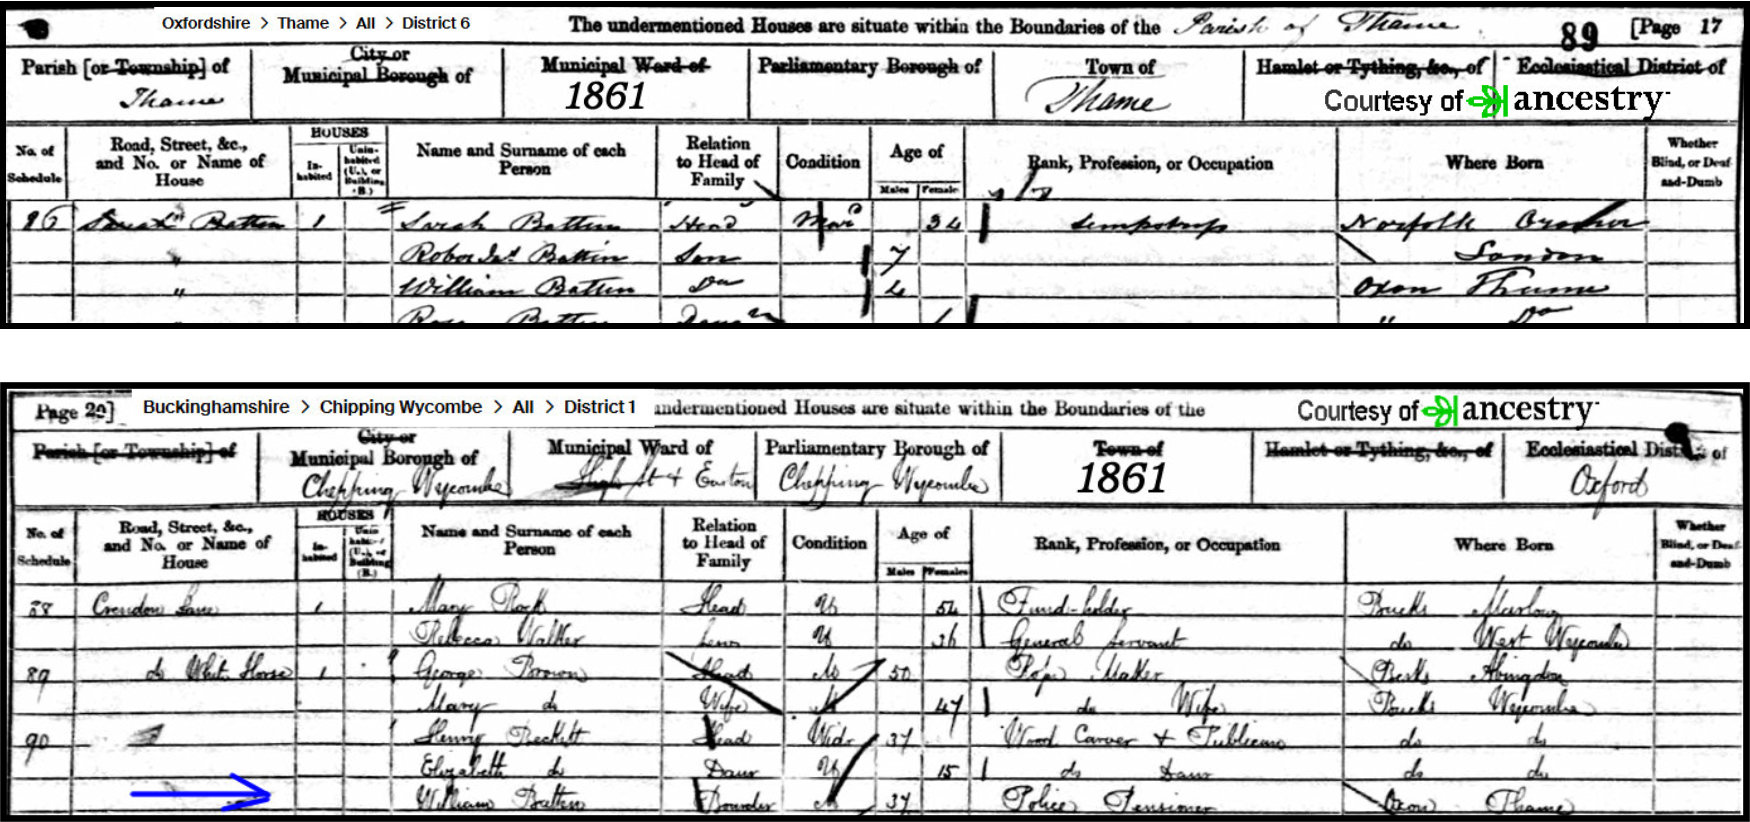 Oxfordshire > Thame > All > District 6 The undermentioned Houses are situate within the Boundaries of the Parish of Thame 89 [Page 17
Parish [or Township] of City or Municipal Borough of Municipal Ward of Parliamentary Borough of Town of Hamlet or Tything, &c., of Ecclesiastical District of
Thame 1861 Thame Courtesy of ancestry
No. of Schedule Road, Street, &c., and No. or Name of House HOUSES Inhabited Uninhabited (U.), or Building (B.) Name and Surname of each Person Relation to Head of Family Condition Age of Males Females Rank, Profession, or Occupation Where Born Whether Blind, or Deaf-and-Dumb
86 Sarah Batten 1 Sarah Batten Head Mar 34 Norfolk
" Batten Son 7 London
" William Batten Do 4 Oxon Thame
Rose Batten Daur 1 " Do
Page 20] Buckinghamshire > Chipping Wycombe > All > District 1 undermentioned Houses are situate within the Boundaries of the Courtesy of ancestry
Parish [or Township] of City or Municipal Borough of Municipal Ward of Parliamentary Borough of Town of Hamlet or Tything, &c., of Ecclesiastical District of
Chepping Wycombe High St & Easton Chepping Wycombe 1861 Oxford
No. of Schedule Road, Street, &c., and No. or Name of House HOUSES Inhabited Uninhabited (U.), or Building (B.) Name and Surname of each Person Relation to Head of Family Condition Age of Males Females Rank, Profession, or Occupation Where Born Whether Blind, or Deaf-and-Dumb
88 Crendon Lane 1 Mary Rock Head U 54 Fund-holder Bucks Marlow
Rebecca Walker Serv U 36 General Servant do West Wycombe
89 do White Horse 1 George Brown Head M 50 Maker Berks Abingdon
Mary do Wife M 47 do Wife Bucks Wycombe
90 Henry Beckitt Head Widr 37 Wood Carver & Publican do do
Elizabeth do Daur U 15 do Daur do do
William Batten Boarder M 37 Police Pensioner Oxon Thame